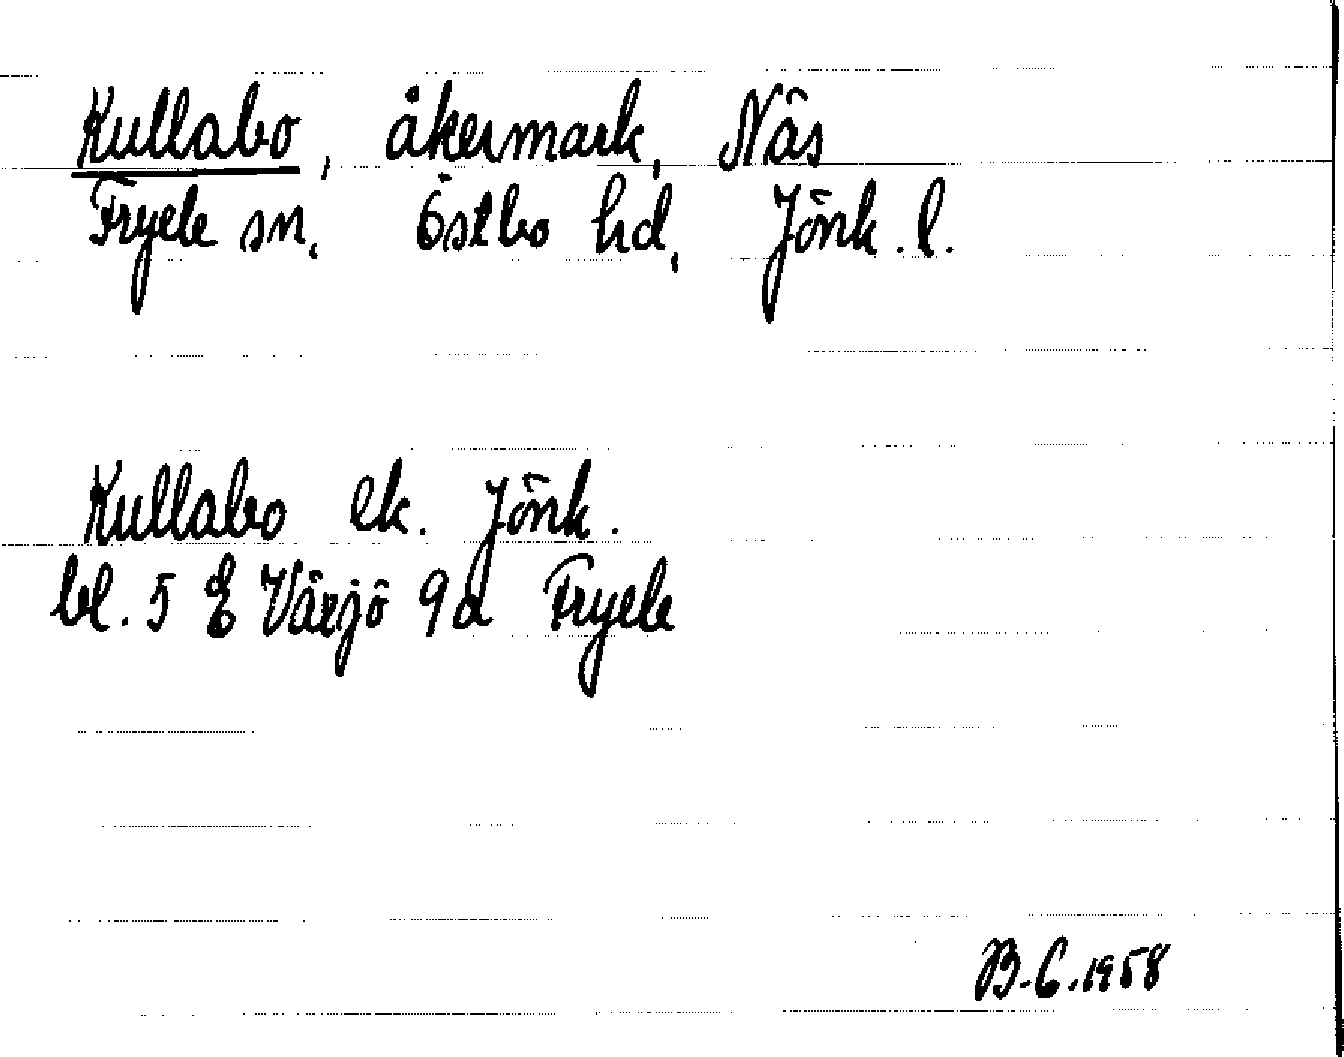 Kullabo, åkermark, Näs
Fryele sn. Östbo hd, Jönk. l.
Kullabo ek. Jönk.
bl. 5 E Växjö 9a Fryele
B.C. 1958